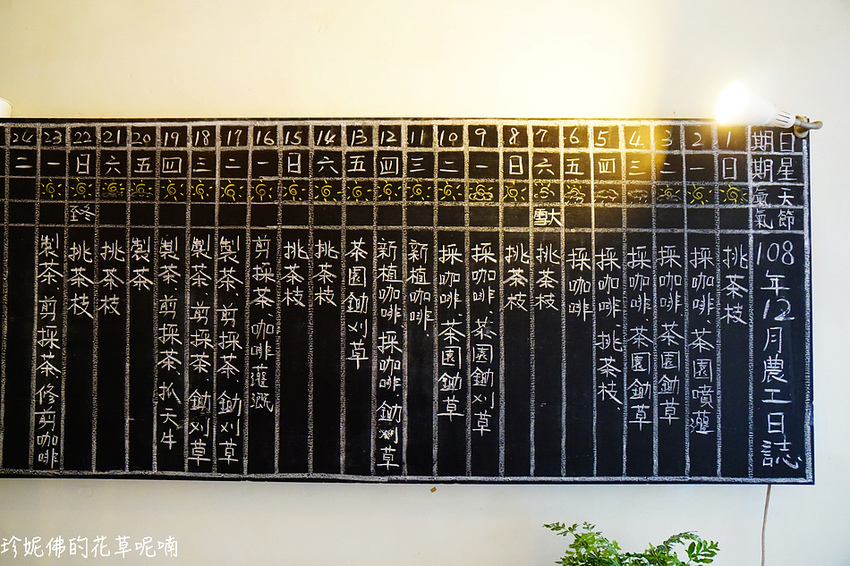 日期
星期
天氣
節氣
108年12月農工日誌
1 日 挑茶枝
2 一 採咖啡.茶園噴灌
3 二 採咖啡.茶園鋤草
4 三 採咖啡.茶園鋤草
5 四 採咖啡.挑茶枝
6 五 採咖啡
7 六 大雪 挑茶枝
8 日 挑茶枝
9 一 採咖啡.茶園鋤刈草
10 二 採咖啡.茶園鋤草
11 三 新植咖啡
12 四 新植咖啡.採咖啡.鋤刈草
13 五 茶園鋤刈草
14 六 挑茶枝
15 日 挑茶枝
16 一 剪採茶.咖啡灌溉
17 二 製茶.剪採茶.鋤刈草
18 三 製茶.剪採茶.鋤刈草
19 四 製茶.剪採茶.抓天牛
20 五 製茶
21 六 挑茶枝
22 日 冬至 挑茶枝
23 一 製茶.剪採茶.修剪咖啡
24 二
珍妮佛的花草呢喃